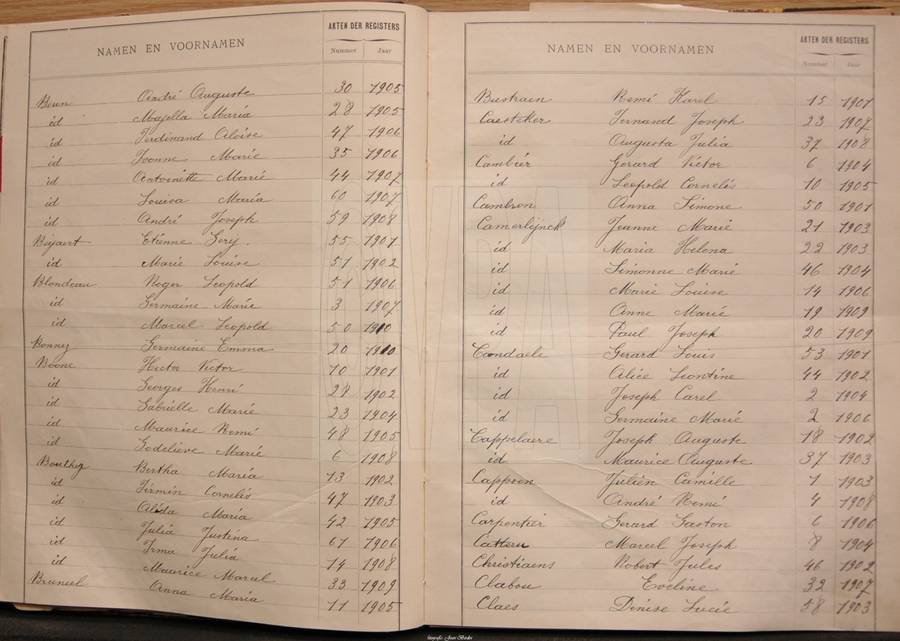 NAMEN EN VOORNAMEN AKTEN DER REGISTERS
Nummer Jaar
Beun André Auguste 30 1905
id Majella Maria 28 1905
id Ferdinand Aloïse 47 1906
id Ivonne Marie 35 1906
id Antoinette Marie 44 1907
id Louisa Maria 60 1907
id André Joseph 59 1908
Beyaert Etienne 55 1901
id Marie Louise 51 1902
Blondeau Roger Leopold 51 1906
id Germaine Marie 3 1907
id Marcel Leopold 50 1910
Bonney Germaine Emma 20 1910
Boone Hector Victor 10 1901
id Georges Henri 28 1902
id Gabrielle Marie 23 1904
id Maurice Remi 48 1905
id Godelieve Marie 6 1908
Bouthy Bertha Maria 13 1902
id Firmin Cornelis 47 1903
id Alida Maria 42 1905
id Julia Justina 61 1906
id Irma Julia 14 1908
id Maurice Marcel 33 1909
Bruneel Anna Maria 11 1905
NAMEN EN VOORNAMEN AKTEN DER REGISTERS
Nummer Jaar
Bustraen Remi Karel 15 1901
Caesteker Fernand Joseph 23 1907
id Augusta Julia 37 1908
Cambier Gerard Victor 6 1904
id Leopold Cornelis 10 1905
Cambron Anna Simone 50 1901
Camerlijnck Jeanne Marie 21 1903
id Maria Helena 22 1903
id Simonne Marie 46 1904
id Marie Louise 14 1906
id Anne Marie 19 1909
id Paul Joseph 20 1909
Candaele Gerard Louis 53 1901
id Alice Leontine 44 1902
id Joseph Carel 2 1904
id Germaine Marie 2 1906
Cappelaere Joseph Auguste 18 1902
id Maurice Auguste 37 1903
Cappoen Julien Camille 1 1903
id André Remi 4 1908
Carpentier Gerard Gaston 6 1906
Catteeu Marcel Joseph 8 1904
Christiaens Robert Jules 46 1902
Clabou Eveline 32 1907
Claes Denise Lucie 58 1903